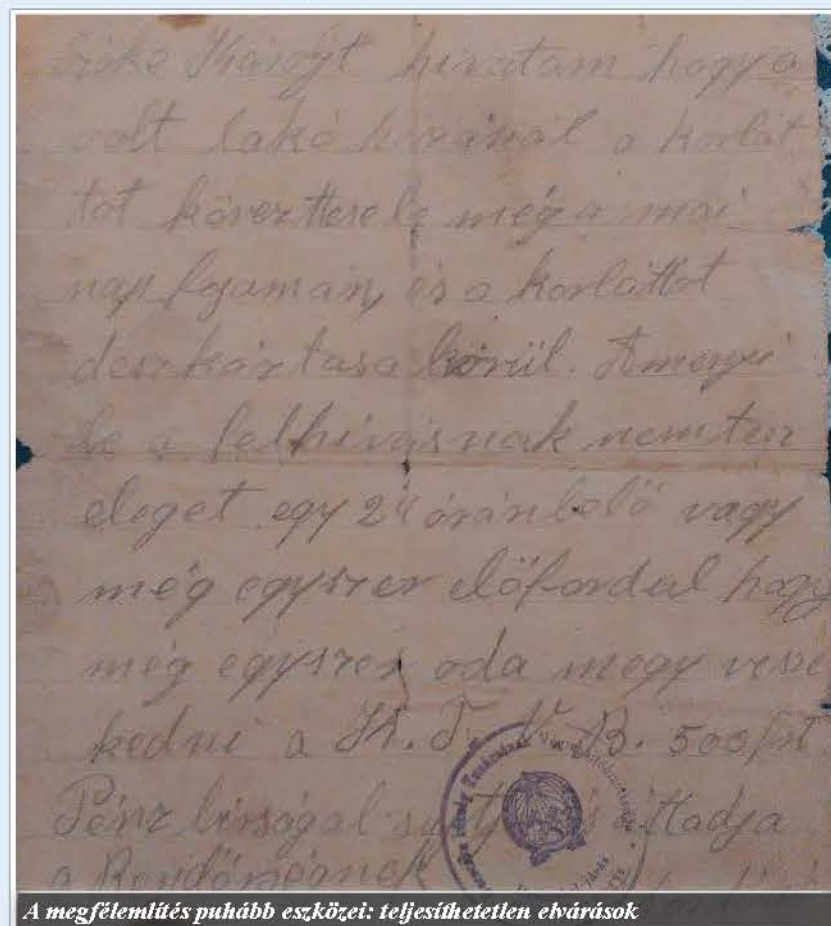 Károlyt hivatom hogy a
volt lakó házánál a korlát
tot még a mai
nap fojamán, és a korláttot
deszkáztasa körül. Amenyi
be a felhivásnak nem tesz
eleget egy 24 órán belő vagy
még egyszer előfordul hogy
még egyszer oda megy vesze
kedni a K. T. V. B. 500 ft
Pénz birságal sujtja és áttadja
a Rendőrségnek
A megfélemlítés puhább eszközei: teljesíthetetlen elvárások